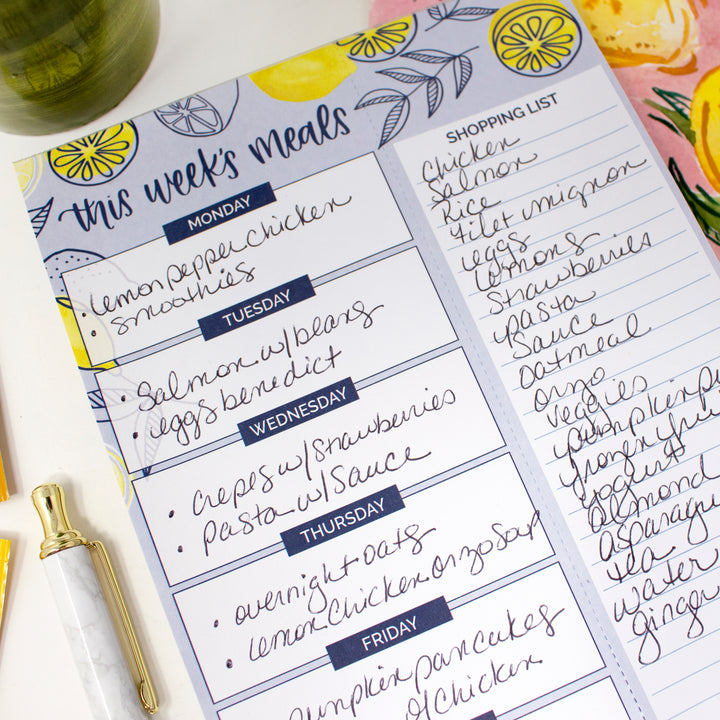 this week's meals
MONDAY
• lemon pepper chicken
• smoothies
TUESDAY
• Salmon w/beans
• eggs benedict
WEDNESDAY
• crepes w/strawberries
• pasta w/sauce
THURSDAY
• overnight oats
• lemon chicken orzo soup
FRIDAY
pumpkin pancakes
chicken
SHOPPING LIST
Chicken
Salmon
Rice
filet mignon
eggs
lemons
strawberries
pasta
sauce
oatmeal
orzo
veggies
pumpkin
frozen
yogurt
almond
asparagus
tea
water
ginger